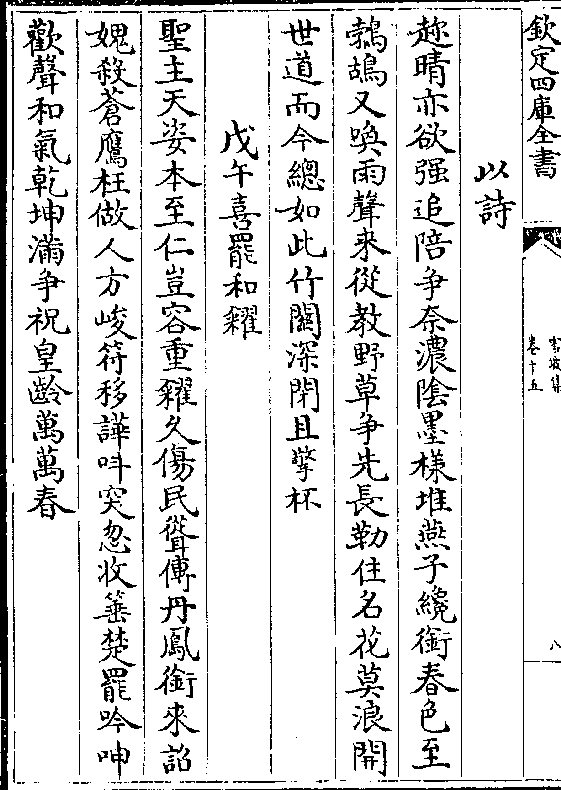 欽定四庫全書
卷十五
八
以詩
趂晴亦欲强追陪争奈濃陰墨様堆燕子纔銜春色至
鵓鴣又喚雨聲來從教野草争先長勒住名花莫浪開
世道而今總如此竹闗深閉且擎杯
戊午喜罷和糴
聖主天姿本至仁豈容重糴久傷民聳傳丹鳳銜來詔
媿殺蒼鷹枉做人方峻符移譁呌突忽收箠楚罷吟呻
歡聲和氣乾坤滿争祝皇齡萬萬春